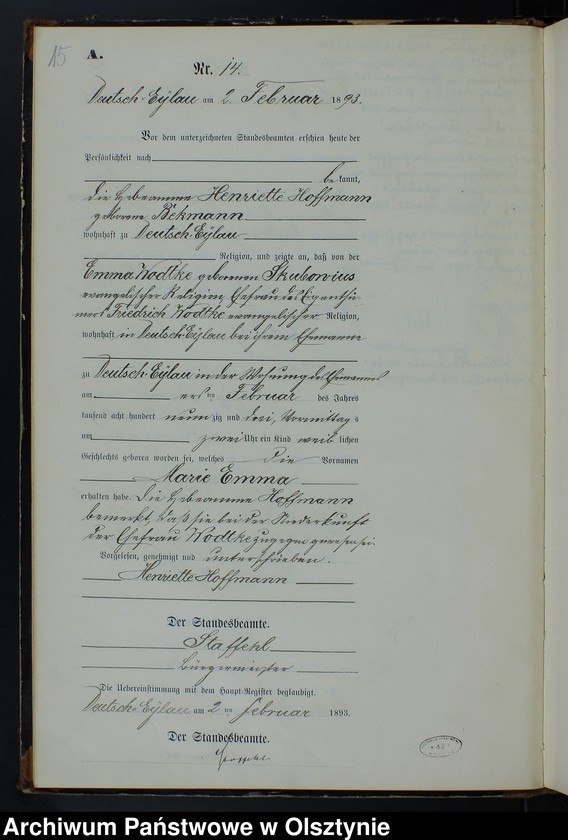 15
A.
Nr. 14.
Deutsch-Eylau am 2. Februar 1893.
Vor dem unterzeichneten Standesbeamten erschien heute der
Persönlichkeit nach
bekannt,
die Hebeamme Henriette Hoffmann
geborene Bekmann
wohnhaft zu Deutsch-Eylau
Religion, und zeigte an, daß von der
Emma Wodtke geborenen Skubowius
evangelischer Religion, Ehefrau des Eigenthü-
mers Friedrich Wodtke evangelischer Religion,
wohnhaft in Deutsch-Eylau bei ihrem Ehemanne
zu Deutsch-Eylau in der Wohnung des Ehemannes
am ersten Februar des Jahres
tausend acht hundert neunzig und drei, Vormittags
um zwei Uhr ein Kind weiblichen
Geschlechts geboren worden sei, welches die Vornamen
Marie Emma
erhalten habe. Die Hebeamme Hoffmann
bemerkt, daß sie bei der Niederkunft
der Ehefrau Wodtke zugegen gewesen sei.
Vorgelesen, genehmigt und unterschrieben.
Henriette Hoffmann
Der Standesbeamte.
Staffehl
Bürgermeister
Die Uebereinstimmung mit dem Haupt-Register beglaubigt.
Deutsch-Eylau am 2ten Februar 1893.
Der Standesbeamte.
Archiwum Państwowe w Olsztynie